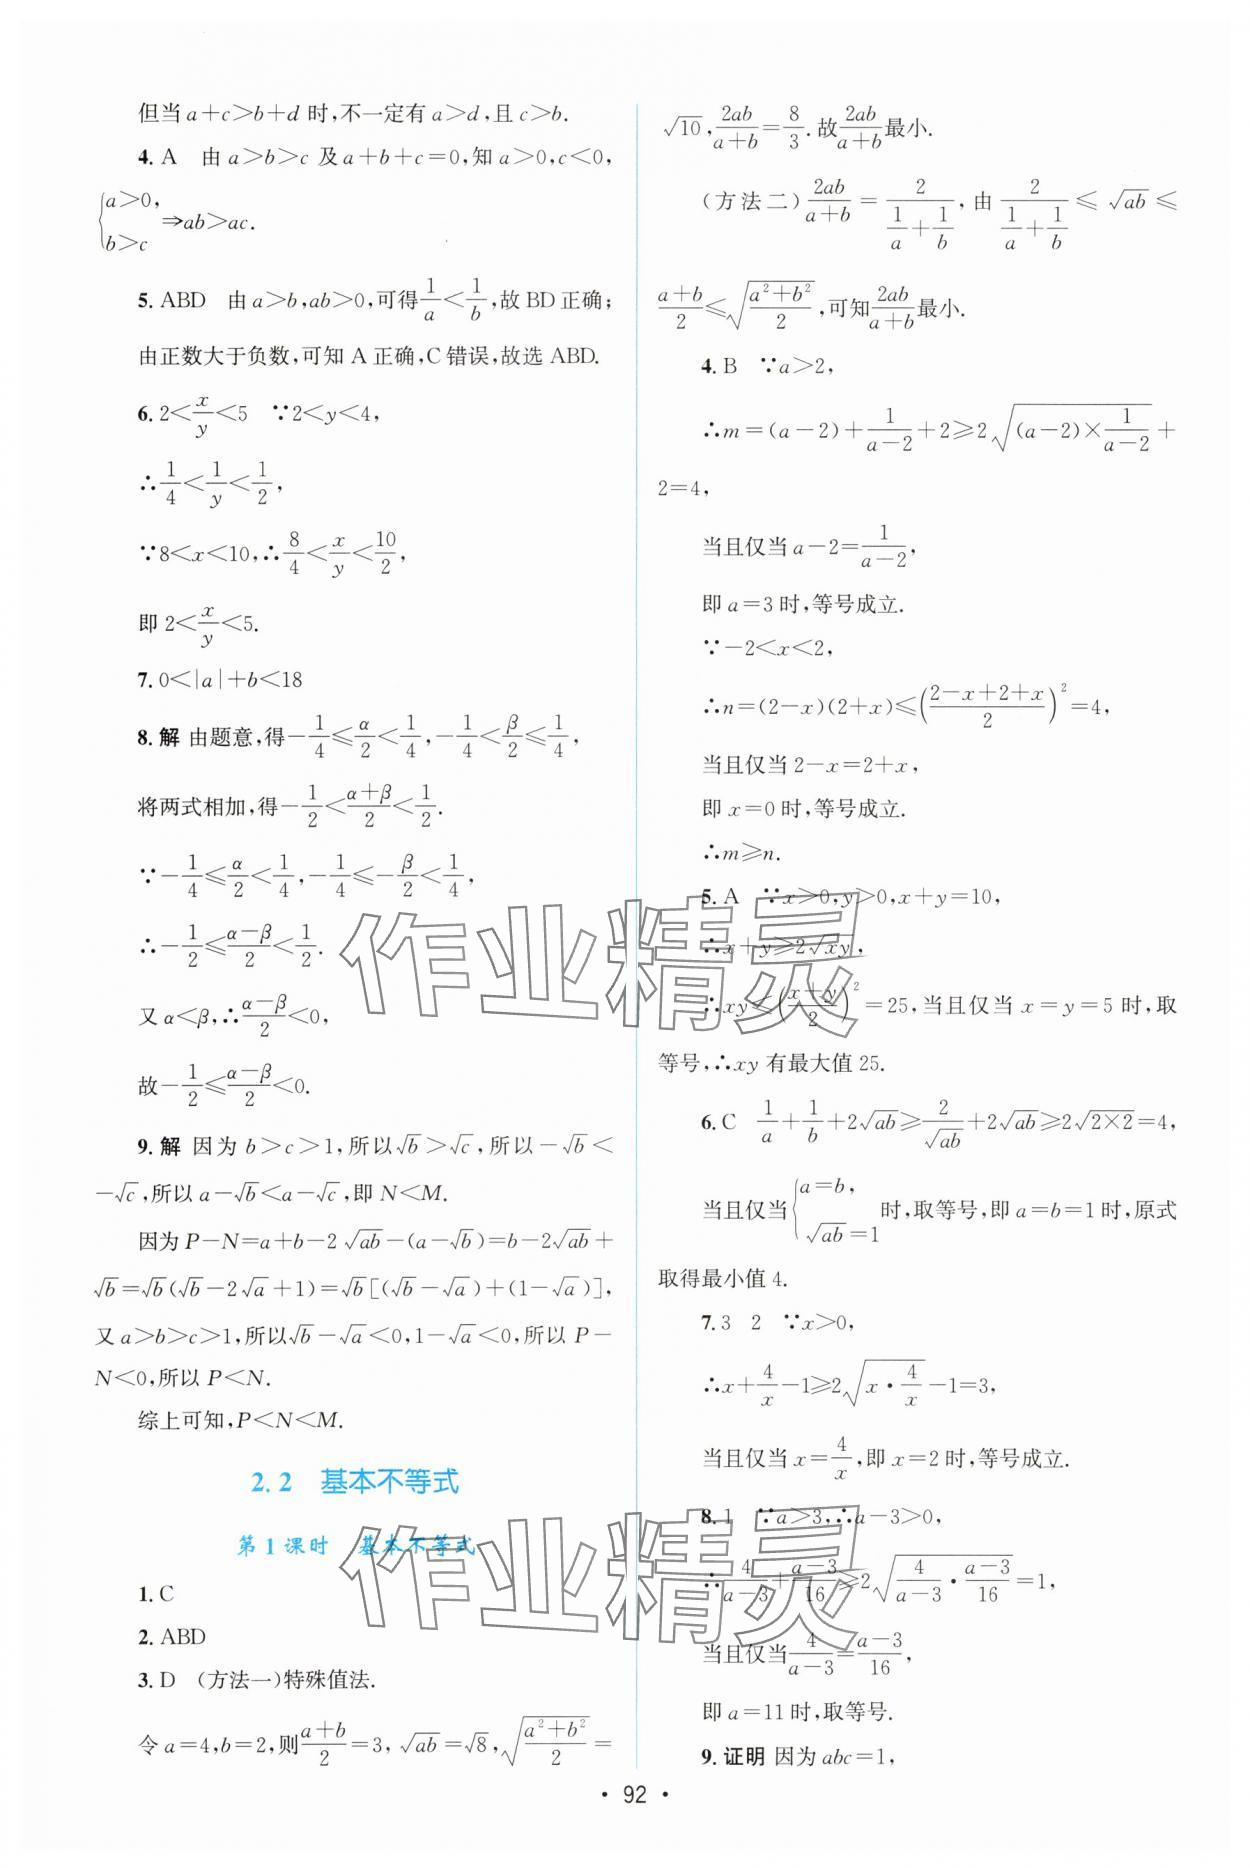 但当 a+c>b+d 时,不一定有 a>d,且 c>b.
4. A 由 a>b>c 及 a+b+c=0,知 a>0,c<0,
{a>0, b>c ⇒ab>ac.
5. ABD 由 a>b,ab>0,可得 1/a<1/b,故 BD 正确;
由正数大于负数,可知 A 正确,C 错误,故选 ABD.
6. 2<x/y<5 ∵2<y<4,
∴1/4<1/y<1/2,
∵8<x<10,∴8/4<x/y<10/2,
即 2<x/y<5.
7. 0<|a|+b<18
8. 解 由题意,得−1/4≤α/2<1/4,−1/4<β/2≤1/4,
将两式相加,得−1/2<(α+β)/2<1/2.
∵−1/4≤α/2<1/4,−1/4≤−β/2<1/4,
∴−1/2≤(α−β)/2<1/2.
又 α<β,∴(α−β)/2<0,
故−1/2≤(α−β)/2<0.
9. 解 因为 b>c>1,所以√b>√c,所以−√b<
−√c,所以 a−√b<a−√c,即 N<M.
因为 P−N=a+b−2√ab−(a−√b)=b−2√ab+
√b=√b(√b−2√a+1)=√b[(√b−√a)+(1−√a)],
又 a>b>c>1,所以√b−√a<0,1−√a<0,所以 P−
N<0,所以 P<N.
综上可知,P<N<M.
2.2 基本不等式
第1课时 基本不等式
1. C
2. ABD
3. D (方法一)特殊值法.
令 a=4,b=2,则(a+b)/2=3,√ab=√8,√((a²+b²)/2)=
√10,2ab/(a+b)=8/3.故2ab/(a+b)最小.
(方法二)2ab/(a+b)=2/(1/a+1/b),由 2/(1/a+1/b)≤√ab≤
(a+b)/2≤√((a²+b²)/2),可知2ab/(a+b)最小.
4. B ∵a>2,
∴m=(a−2)+1/(a−2)+2≥2√((a−2)×1/(a−2))+
2=4,
当且仅当 a−2=1/(a−2),
即 a=3 时,等号成立.
∵−2<x<2,
∴n=(2−x)(2+x)≤((2−x+2+x)/2)²=4,
当且仅当 2−x=2+x,
即 x=0 时,等号成立.
∴m≥n.
5. A ∵x>0,y>0,x+y=10,
∴x+y≥2√xy,
∴xy≤((x+y)/2)²=25,当且仅当 x=y=5 时,取
等号,∴xy 有最大值 25.
6. C 1/a+1/b+2√ab≥2/√ab+2√ab≥2√(2×2)=4,
当且仅当{a=b, √ab=1 时,取等号,即 a=b=1 时,原式
取得最小值 4.
7. 3 2 ∵x>0,
∴x+4/x−1≥2√(x·4/x)−1=3,
当且仅当 x=4/x,即 x=2 时,等号成立.
8. 1 ∵a>3,∴a−3>0,
∴4/(a−3)+(a−3)/16≥2√(4/(a−3)·(a−3)/16)=1,
当且仅当4/(a−3)=(a−3)/16,
即 a=11 时,取等号.
9. 证明 因为 abc=1,
· 92 ·
作业精灵
作业精灵